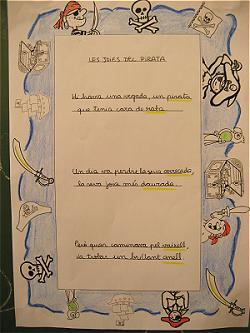 LES JOIES DEL PIRATA
Hi havia una vegada, un pirata
que tenia cara de rata.
Un dia va perdre la seva arrecada,
la seva joia més daurada.
Però quan caminava pel vaixell
va trobar un brillant anell.